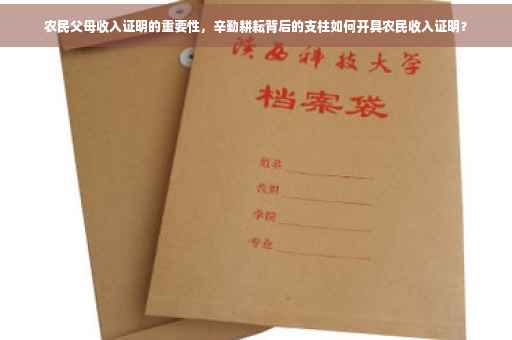 农民父母收入证明的重要性，辛勤耕耘背后的支柱如何开具农民收入证明？
陕西科技大学
档案袋
姓名
类别
学院
专业